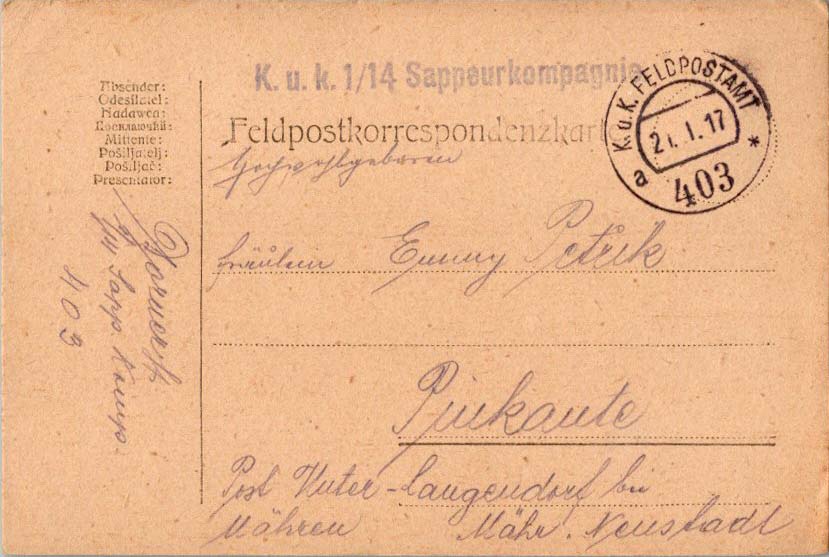 K. u. k. 1/14 Sappeurkompagnie
K.u.K. FELDPOSTAMT
21.1.17
a 403 *
Absender:
Odesílatel:
Nadawca:
Посилаючий:
Mittente:
Pošiljatelj:
Pošiljač:
Presentator:
Feldpostkorrespondenzkarte
Hochwohlgeboren
Fräulein Emmy Petrik
Pinkaute
Post Unter-Langendorf bei
Mähren Mähr. Neustadt
1/14 Sapp. Komp.
403